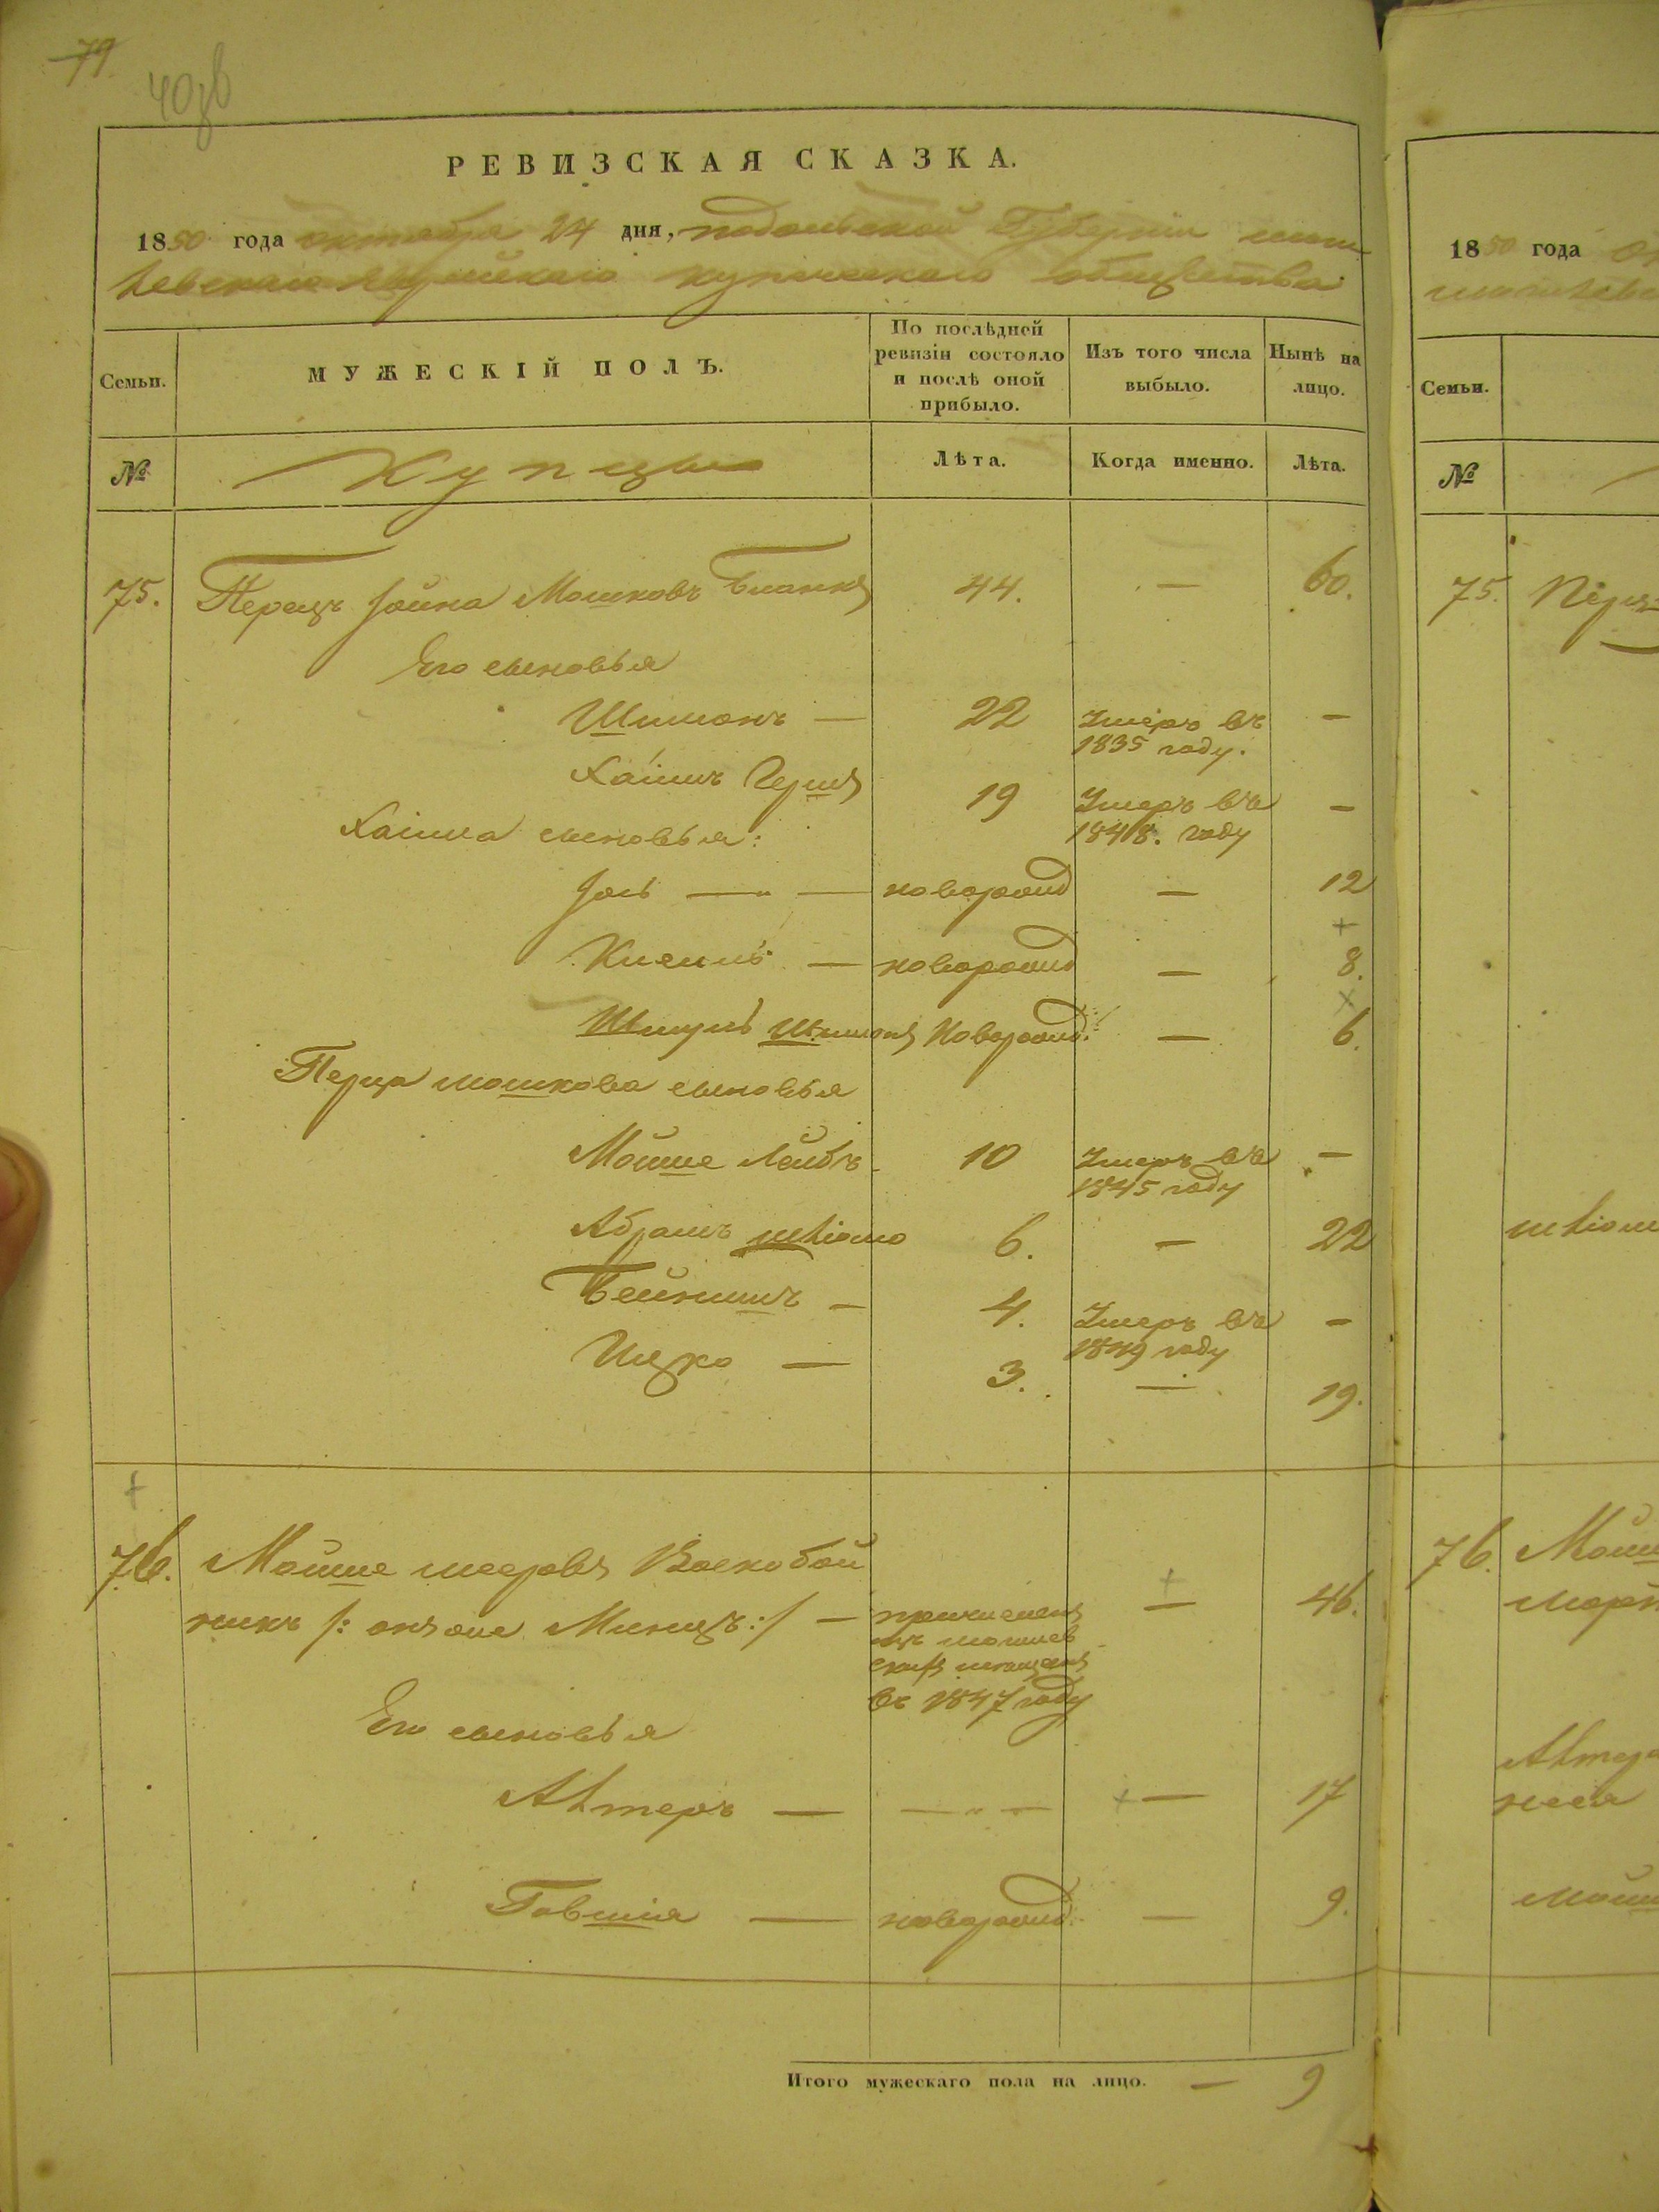 79.
40об
РЕВИЗСКАЯ СКАЗКА.
1850 года октября 24 дня, подольской Губернии моги
левскаго еврейскаго купеческаго общества
Семьи.
МУЖЕСКІЙ ПОЛЪ.
По послѣдней ревизіи состояло и послѣ оной прибыло.
Изъ того числа выбыло.
Нынѣ на лицо.
№ Купцы Лѣта. Когда именно. Лѣта.
75. Перецъ Іойна Мошковъ Бланкъ 44. — 60.
Его сыновья
Шимонъ — 22 Умеръ въ 1835 году. —
Хаимъ Герш 19 Умеръ въ 1848. году —
Хаима сыновья:
Іось — новорожд — 12
Кисиль — новорожд — 8.
Шмуль Шимонъ Новорожд. — 6.
Перца мошкова сыновья
Мойше Лейбъ 10 Умеръ въ 1845 году —
Абрамъ шліомо 6. — 22
Бейнишъ — 4. Умеръ въ 1849 году —
Ицко — 3. — 19.
76. Мойше мееровъ Воскобой
никъ /: онъ же Минцъ :/ — причисленъ изъ могилев скихъ мещанъ въ 1847 году — 46.
Его сыновья
Алтеръ — — „ — — 17
Говшія — новорожд. — 9.
Итого мужескаго пола на лицо. — 9
1850 года
Семьи.
№
75.
76.